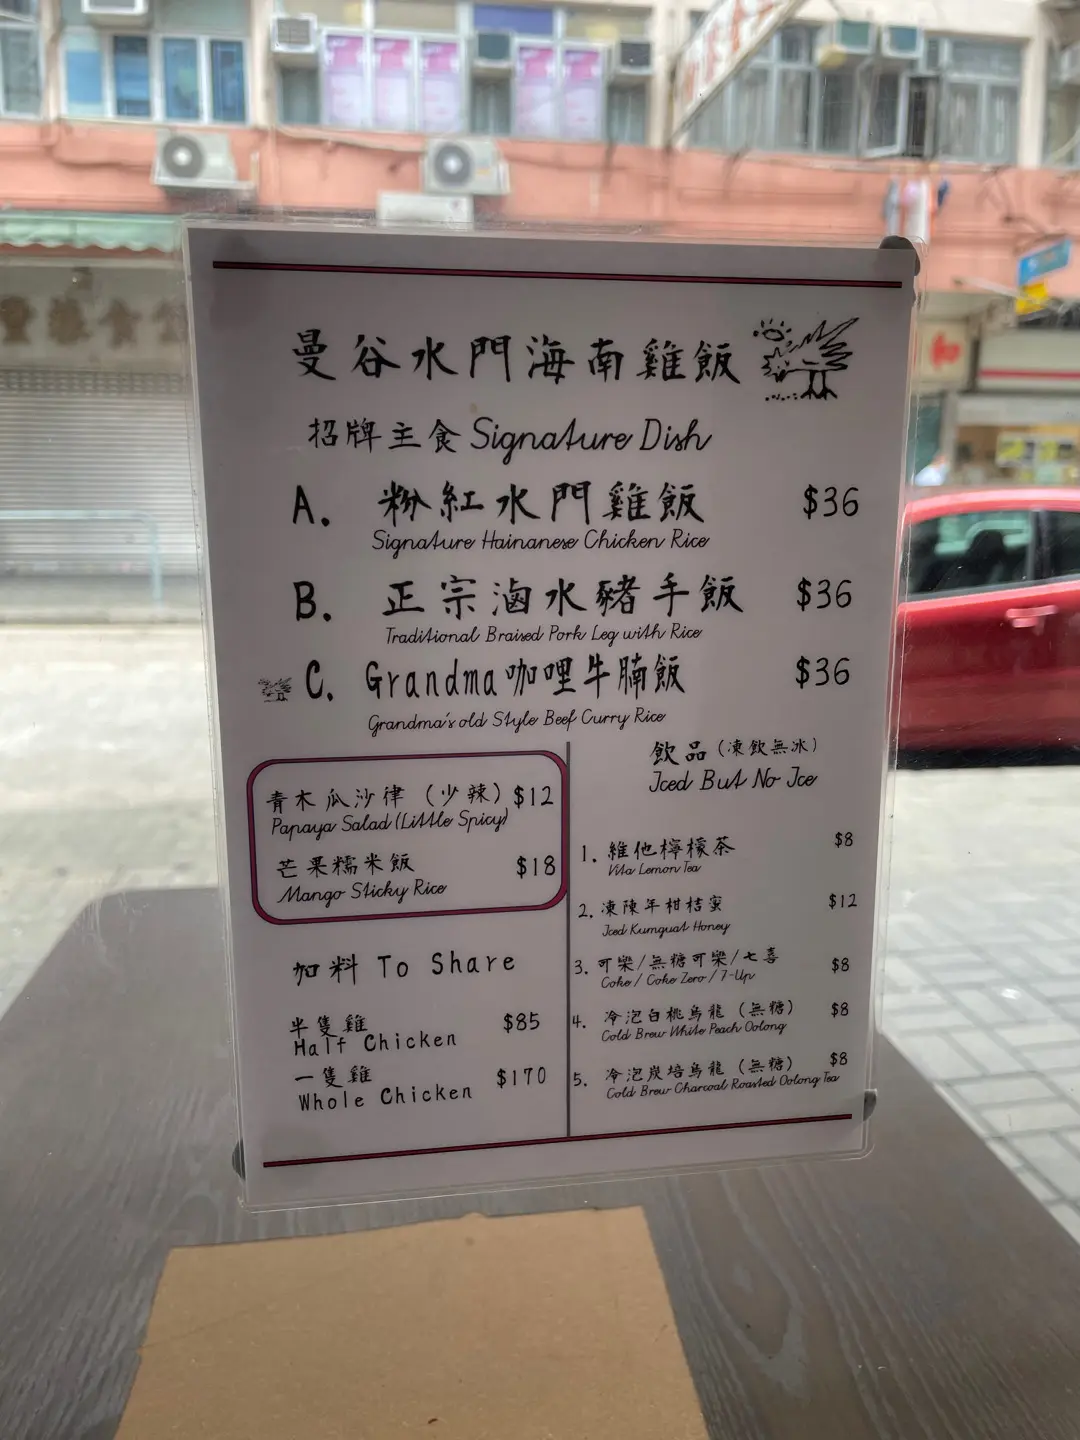 曼谷水門海南雞飯
招牌主食 Signature Dish
A. 粉紅水門雞飯 $36
Signature Hainanese Chicken Rice
B. 正宗滷水豬手飯 $36
Traditional Braised Pork Leg with Rice
C. Grandma咖哩牛腩飯 $36
Grandma's old Style Beef Curry Rice
青木瓜沙律（少辣）$12
Papaya Salad (Little Spicy)
芒果糯米飯 $18
Mango Sticky Rice
加料 To Share
半隻雞 $85
Half Chicken
一隻雞 $170
Whole Chicken
飲品（凍飲無冰）
Iced But No Ice
1. 維他檸檬茶 $8
Vita Lemon Tea
2. 凍陳年柑桔蜜 $12
Iced Kumquat Honey
3. 可樂/無糖可樂/七喜 $8
Coke / Coke Zero / 7-Up
4. 冷泡白桃烏龍（無糖） $8
Cold Brew White Peach Oolong
5. 冷泡炭培烏龍（無糖） $8
Cold Brew Charcoal Roasted Oolong Tea